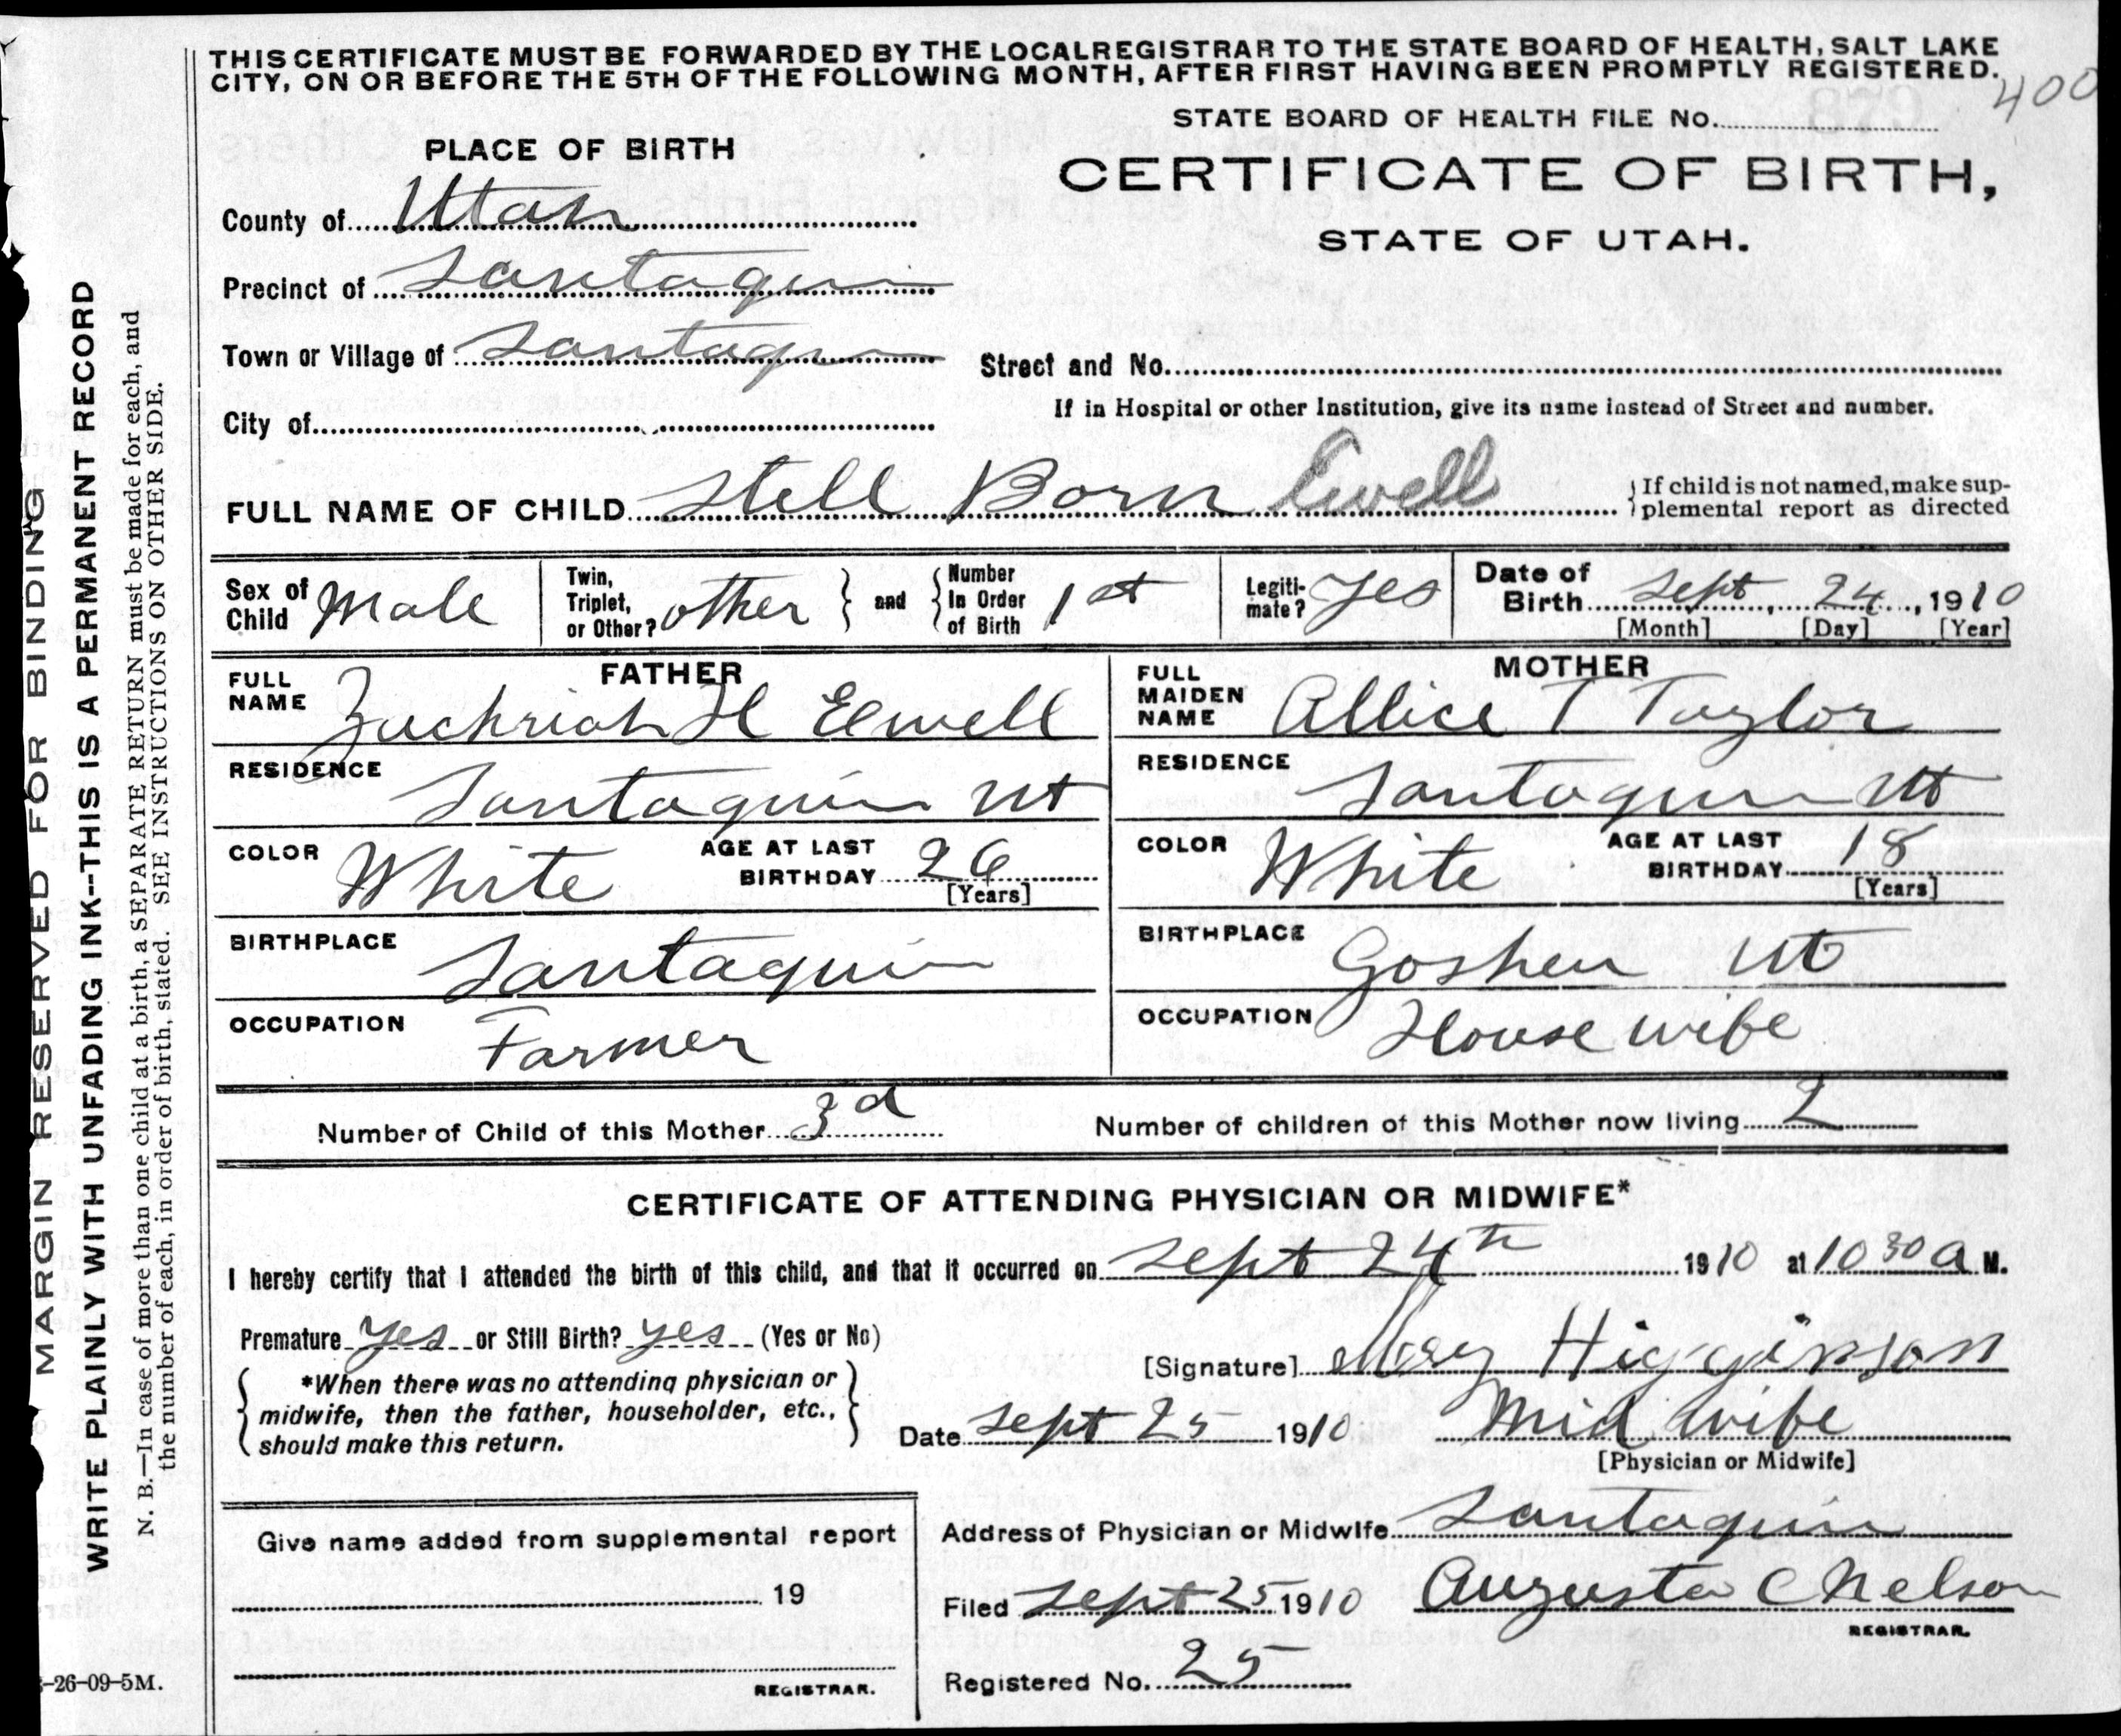 THIS CERTIFICATE MUST BE FORWARDED BY THE LOCAL REGISTRAR TO THE STATE BOARD OF HEALTH, SALT LAKE
CITY, ON OR BEFORE THE 5TH OF THE FOLLOWING MONTH, AFTER FIRST HAVING BEEN PROMPTLY REGISTERED.
400
STATE BOARD OF HEALTH FILE No.
PLACE OF BIRTH
CERTIFICATE OF BIRTH,
STATE OF UTAH.
County of Utah
Precinct of Santaquin
Town or Village of Santaquin
Street and No.
If in Hospital or other Institution, give its name instead of Street and number.
City of
FULL NAME OF CHILD Stell Born Ewell
If child is not named, make sup-
plemental report as directed
Sex of Child Male
Twin, Triplet, or Other? other
and
Number In Order of Birth 1st
Legiti-mate? Yes
Date of Birth Sept, 24, 1910
[Month] [Day] [Year]
FATHER
FULL NAME Zachriah H Elwell
RESIDENCE
Santaquin Ut
COLOR White
AGE AT LAST BIRTHDAY 26
[Years]
BIRTHPLACE
Santaquin
OCCUPATION
Farmer
MOTHER
FULL MAIDEN NAME Allice T Taylor
RESIDENCE
Santaquin Ut
COLOR White
AGE AT LAST BIRTHDAY 18
[Years]
BIRTHPLACE
Goshen Ut
OCCUPATION
House wife
Number of Child of this Mother 3d
Number of children of this Mother now living 2
CERTIFICATE OF ATTENDING PHYSICIAN OR MIDWIFE*
I hereby certify that I attended the birth of this child, and that it occurred on Sept 24th 1910 at 10 30 a M.
Premature yes or Still Birth? yes (Yes or No)
*When there was no attending physician or
midwife, then the father, householder, etc.,
should make this return.
[Signature] Mary Higginson
Date Sept 25 1910
Mid wife
[Physician or Midwife]
Address of Physician or Midwife Santaquin
Filed Sept 25 1910
Augusta C Nelson
REGISTRAR.
Registered No. 25
Give name added from supplemental report
19
REGISTRAR.
MARGIN RESERVED FOR BINDING
WRITE PLAINLY WITH UNFADING INK--THIS IS A PERMANENT RECORD
N. B.—In case of more than one child at a birth, a SEPARATE RETURN must be made for each, and
the number of each, in order of birth, stated. SEE INSTRUCTIONS ON OTHER SIDE.
-26-09-5M.